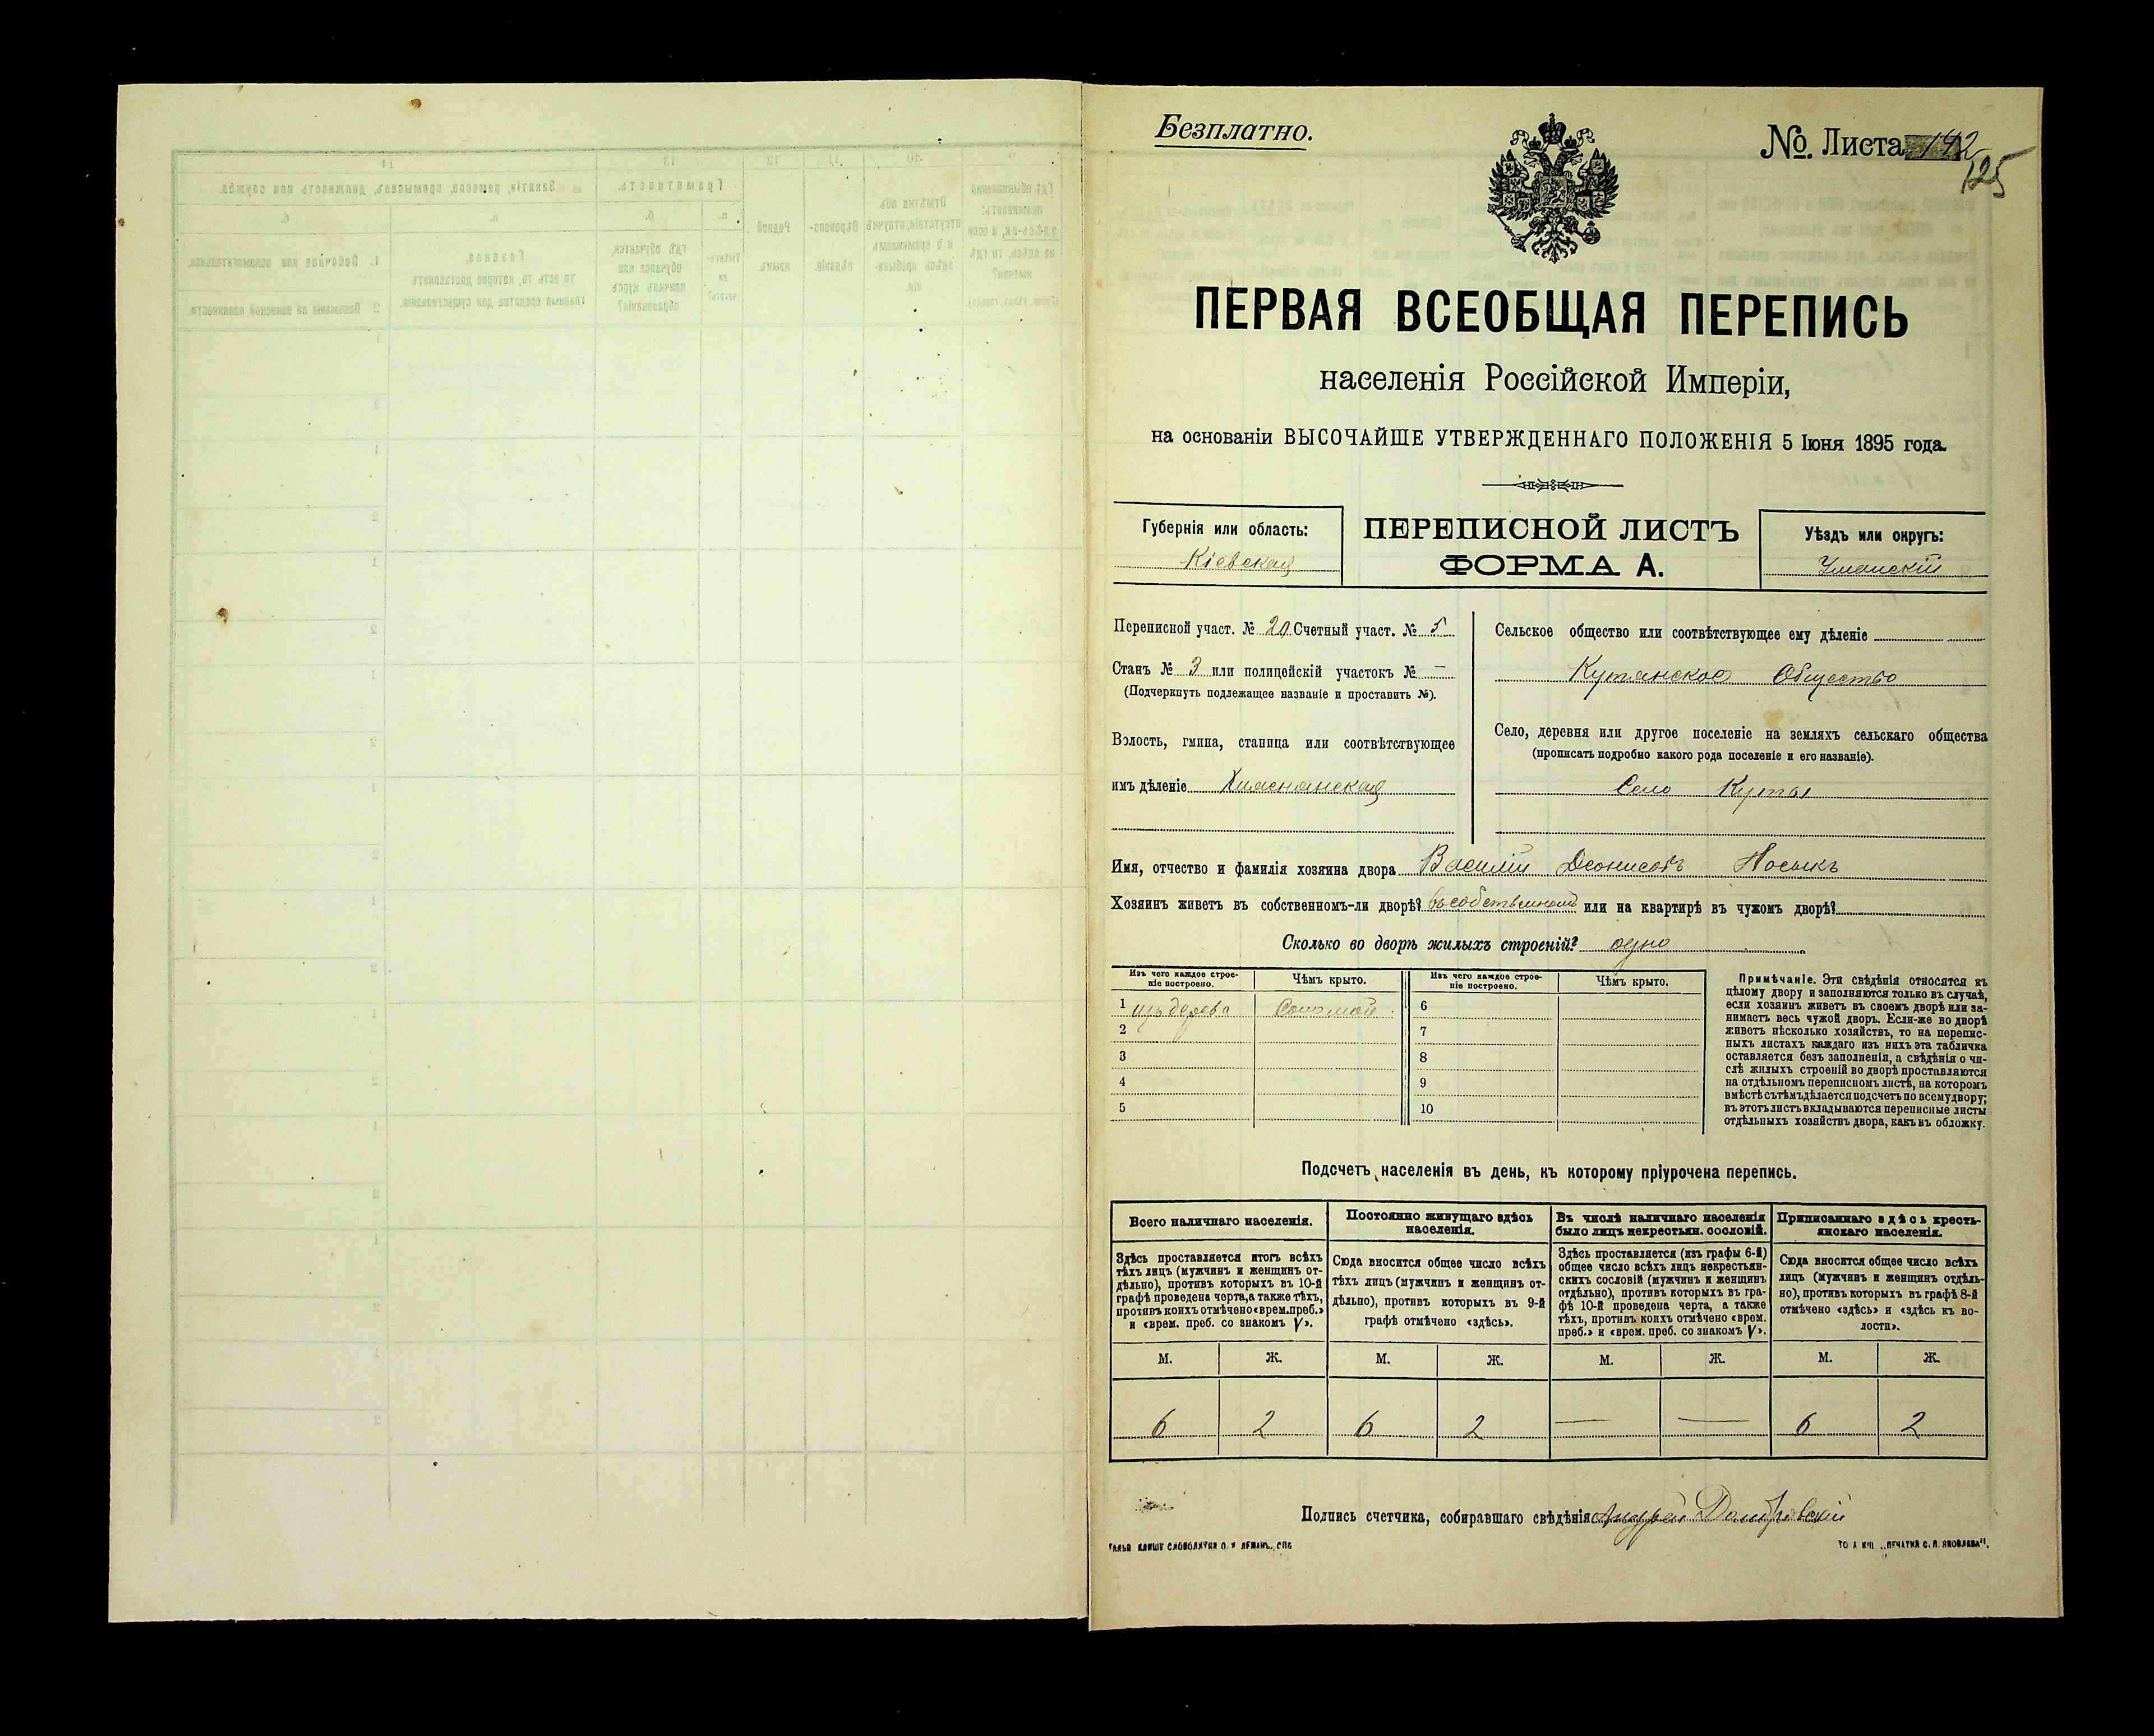 Безплатно.
№. Листа 142
125
ПЕРВАЯ ВСЕОБЩАЯ ПЕРЕПИСЬ
населенія Россійской Имперіи,
на основаніи ВЫСОЧАЙШЕ УТВЕРЖДЕННАГО ПОЛОЖЕНІЯ 5 Іюня 1895 года.
Губернія или область:
Кіевская
ПЕРЕПИСНОЙ ЛИСТЪ
ФОРМА А.
Уѣздъ или округъ:
Уманскій
Переписной участ. № 20 Счетный участ. № 5
Станъ № 3 или полицейскій участокъ № —
(Подчеркнуть подлежащее названіе и проставить №).
Волость, гмина, станица или соотвѣтствующее
имъ дѣленіе
Сельское общество или соотвѣтствующее ему дѣленіе
Кутянское Общество
Село, деревня или другое поселеніе на земляхъ сельскаго общества
(прописать подробно какого рода поселеніе и его названіе).
Село Куты
Имя, отчество и фамилія хозяина двора Василій Деонисовъ Носыкъ
Хозяинъ живетъ въ собственномъ-ли дворѣ? въ собственномъ или на квартирѣ въ чужомъ дворѣ?
Сколько во дворѣ жилыхъ строеній? одно
Изъ чего каждое строе-
ніе построено.
Чѣмъ крыто.
Изъ чего каждое строе-
ніе построено.
Чѣмъ крыто.
1 изъ дерева Соломой 6
2 7
3 8
4 9
5 10
Примѣчаніе. Эти свѣдѣнія относятся къ
цѣлому двору и заполняются только въ случаѣ,
если хозяинъ живетъ въ своемъ дворѣ или за-
нимаетъ весь чужой дворъ. Если-же во дворѣ
живетъ нѣсколько хозяйствъ, то на перепис-
ныхъ листахъ каждаго изъ нихъ эта табличка
оставляется безъ заполненія, а свѣдѣнія о чи-
слѣ жилыхъ строеній во дворѣ проставляются
на отдѣльномъ переписномъ листѣ, на которомъ
вмѣстѣ съ тѣмъ дѣлается подсчетъ по всему двору;
въ этотъ листъ вкладываются переписные листы
отдѣльныхъ хозяйствъ двора, какъ въ обложку.
Подсчетъ населенія въ день, къ которому пріурочена перепись.
Всего наличнаго населенія.
Здѣсь проставляется итогъ всѣхъ
тѣхъ лицъ (мужчинъ и женщинъ от-
дѣльно), противъ которыхъ въ 10-й
графѣ проведена черта, а также тѣхъ,
противъ коихъ отмѣчено «врем. преб.»
и «врем. преб. со знакомъ V».
Постоянно живущаго здѣсь
населенія.
Сюда вносится общее число всѣхъ
тѣхъ лицъ (мужчинъ и женщинъ от-
дѣльно), противъ которыхъ въ 9-й
графѣ отмѣчено «здѣсь».
Въ числѣ наличнаго населенія
было лицъ некрестьян. сословій.
Здѣсь проставляется (изъ графы 6-й)
общее число всѣхъ лицъ некрестьян-
скихъ сословій (мужчинъ и женщинъ
отдѣльно), противъ которыхъ въ гра-
фѣ 10-й проведена черта, а также
тѣхъ, противъ коихъ отмѣчено «врем.
преб.» и «врем. преб. со знакомъ V».
Приписаннаго здѣсь кресть-
янскаго населенія.
Сюда вносится общее число всѣхъ
лицъ (мужчинъ и женщинъ отдѣль-
но), противъ которыхъ въ графѣ 8-й
отмѣчено «здѣсь» и «здѣсь къ во-
лости».
М. Ж. М. Ж. М. Ж. М. Ж.
6 2 6 2 — — 6 2
Подпись счетчика, собиравшаго свѣдѣнія Андрей Домбровскій